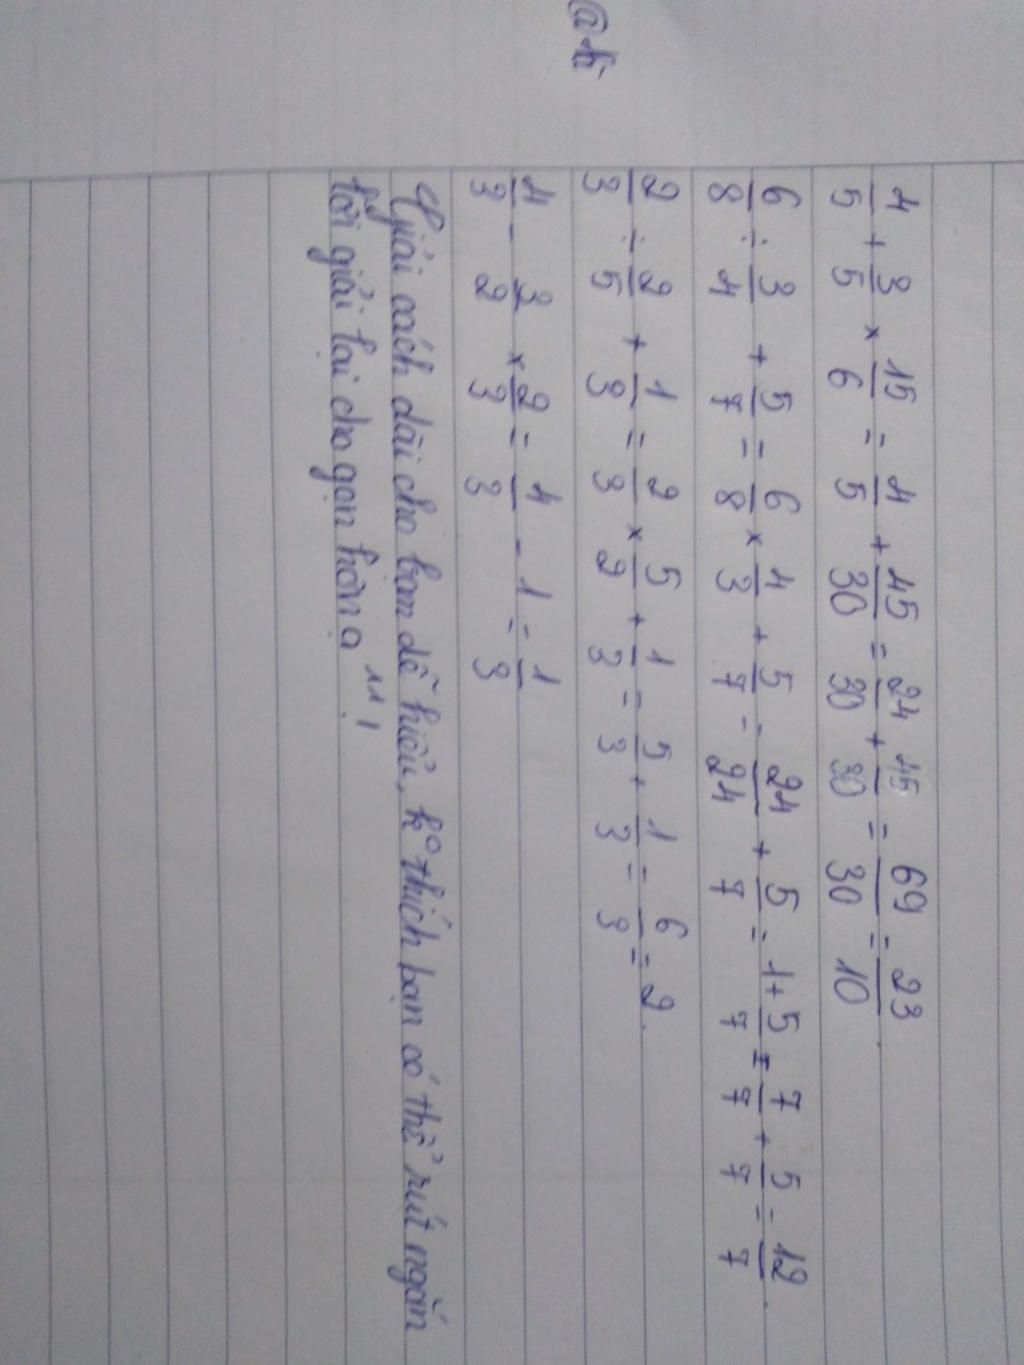 @hi
4/5 + 3/5 × 15/6 = 4/5 + 45/30 = 24/30 + 45/30 = 69/30 = 23/10.
6/8 : 3/4 + 5/7 = 6/8 × 4/3 + 5/7 = 24/24 + 5/7 = 1 + 5/7 = 7/7 + 5/7 = 12/7.
2/3 : 2/5 + 1/3 = 2/3 × 5/2 + 1/3 = 5/3 + 1/3 = 6/3 = 2.
4/3 - 3/2 × 2/3 = 4/3 - 1 = 1/3
Giải cách dài cho bạn dễ hiểu, ko thích bạn có thể rút ngắn
lời giải lại cho gọn hơn ạ